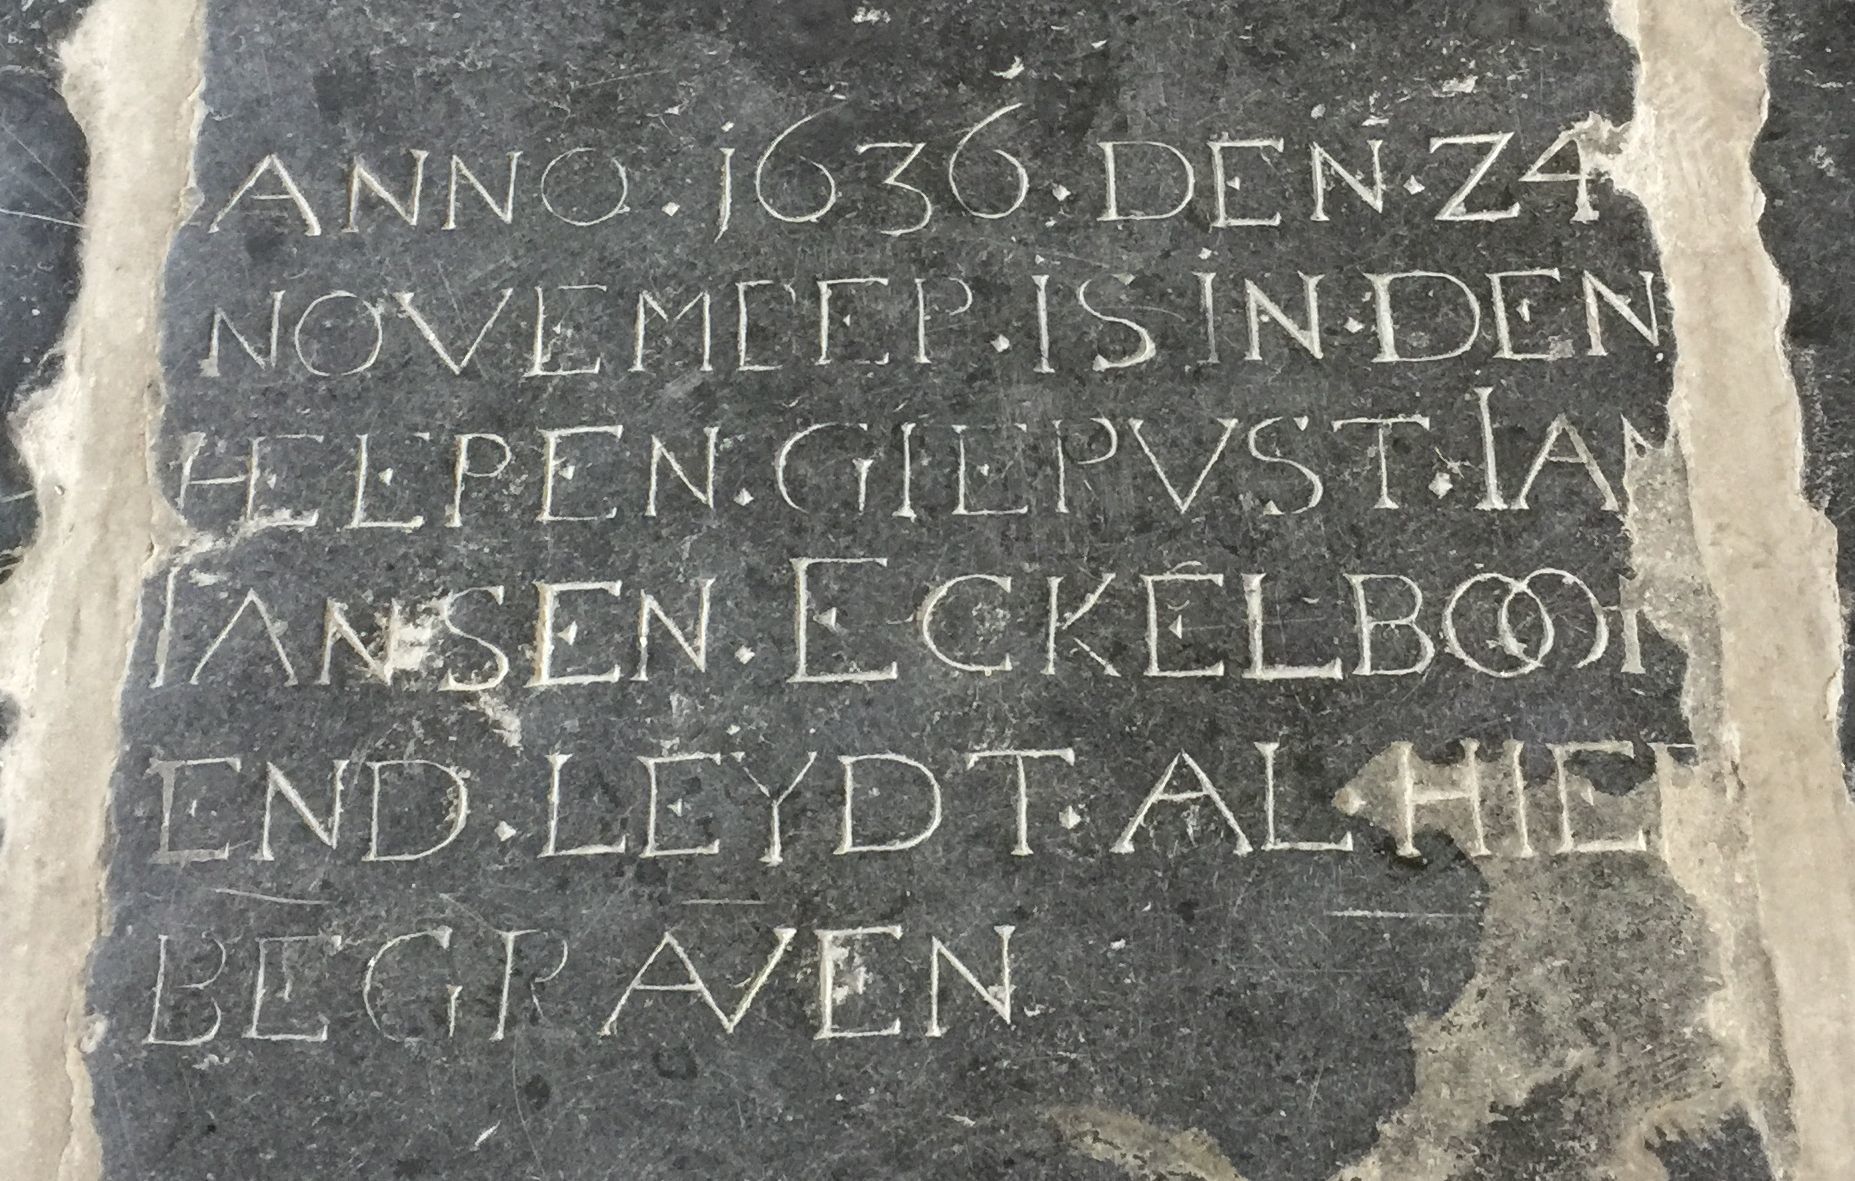 ANNO · 1636 · DEN · 24
NOVEMBER · IS IN · DEN
HEERE EN · GERUST · IAN
IANSEN · ECKELBOOM
END · LEYDT · AL HIER
BEGRAVEN